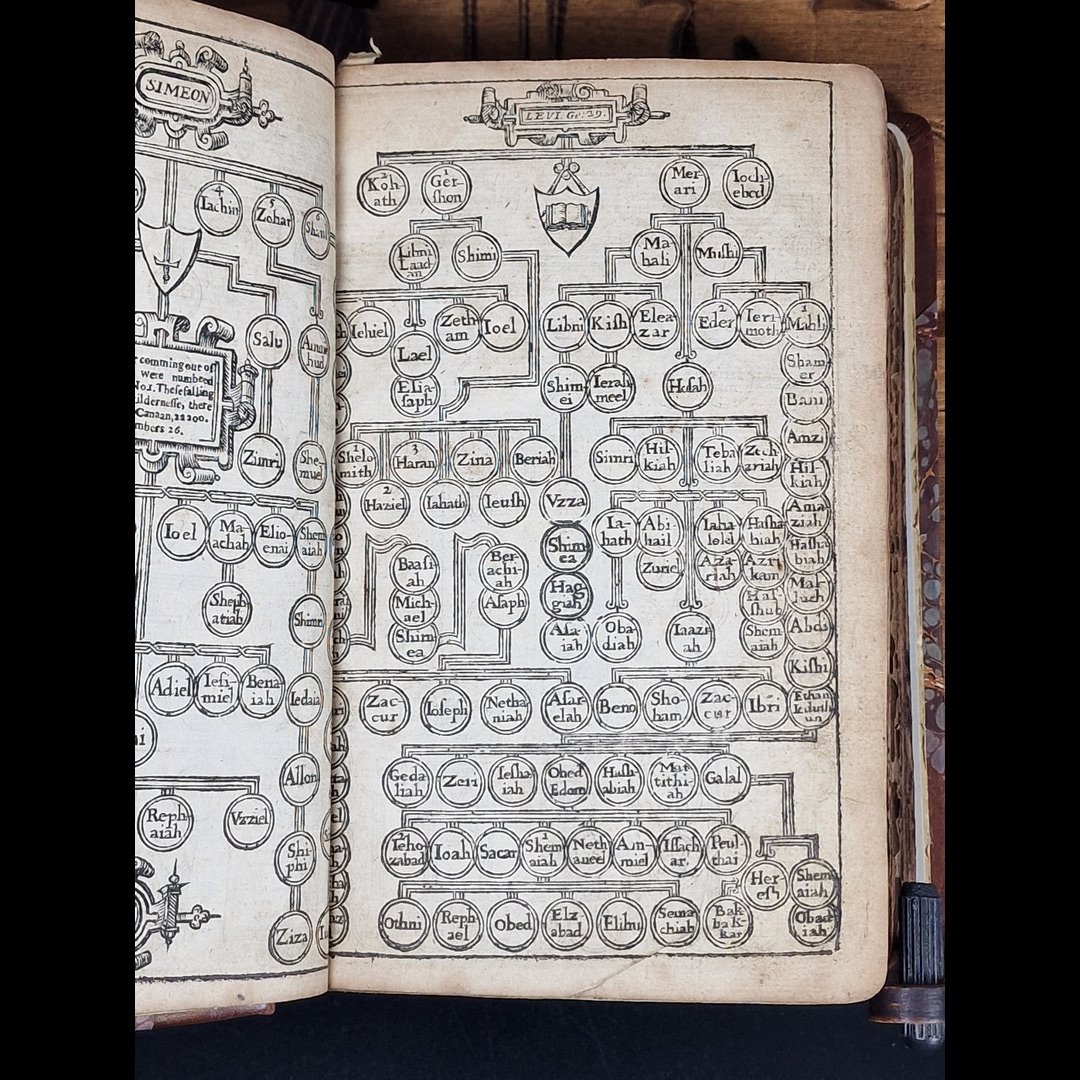 SIMEON
4
Iachin
5
Zohar
6
Salu
comming out of
were numbred
No.1. These falling
ildernesse, there
Canaan, 22200.
mbers 26.
Zimri
She-
muel
Ioel
Ma-
achah
Elio-
enai
Shem
aiah
Sheph
atiah
Shimri
Adiel
Iesi-
miel
Bena
iah
Iedaia
Allon
Reph
aiah
Vzziel
Shi-
phi
Ziza
LEVI. Ge: 29
2
Koh-
ath
1
Ger-
shon
Mer-
ari
Ioch-
ebed
Libni
Laad
an
Shimi
Ma-
hali
Mushi
Iehiel
Zeth
am
Ioel
Libni
Kish
Elea
zar
2
Eder
Ieri-
moth
1
Mahli
Lael
Sham
er
Elia-
saph
Shim-
ei
Ierah
meel
Husah
Bani
1
Shelo
mith
3
Haran
Zina
Beriah
Simri
Hil-
kiah
Teba
liah
Zech-
ariah
Amzi
Hil-
kiah
2
Haziel
Iahath
Ieush
Vzza
Ama
ziah
Ia-
hath
Abi-
hail
Iaha-
lelel
Hasha
biah
Shim-
ea
Hasha
biah
Baasi-
ah
Ber-
achi-
ah
Zuriel
Aza-
riah
Azri
kam
Mal-
luch
Mich-
ael
Asaph
Hag-
giah
Has-
shub
Abdi
Shim-
ea
Asa-
iah
Oba-
diah
Iaazi-
ah
Shem
aiah
Kishi
Zac-
cur
Ioseph
Netha
niah
Asar-
elah
Beno
Sho-
ham
Zac-
cur
Ibri
Ethan
Ieduth
un
Geda
liah
Zeri
Iesha-
iah
Obed
Edom
Hash
abiah
Mat
tithi-
ah
Galal
2
Ieho
zabad
Ioah
Sacar
1
Shem
aiah
Neth
aneel
Am-
miel
Issach
ar
Peul
thai
Her-
esh
Shem
aiah
Othni
Reph
ael
Obed
Elz
abad
Elihu
Sema
chiah
Bak
bak-
kar
Obad
iah